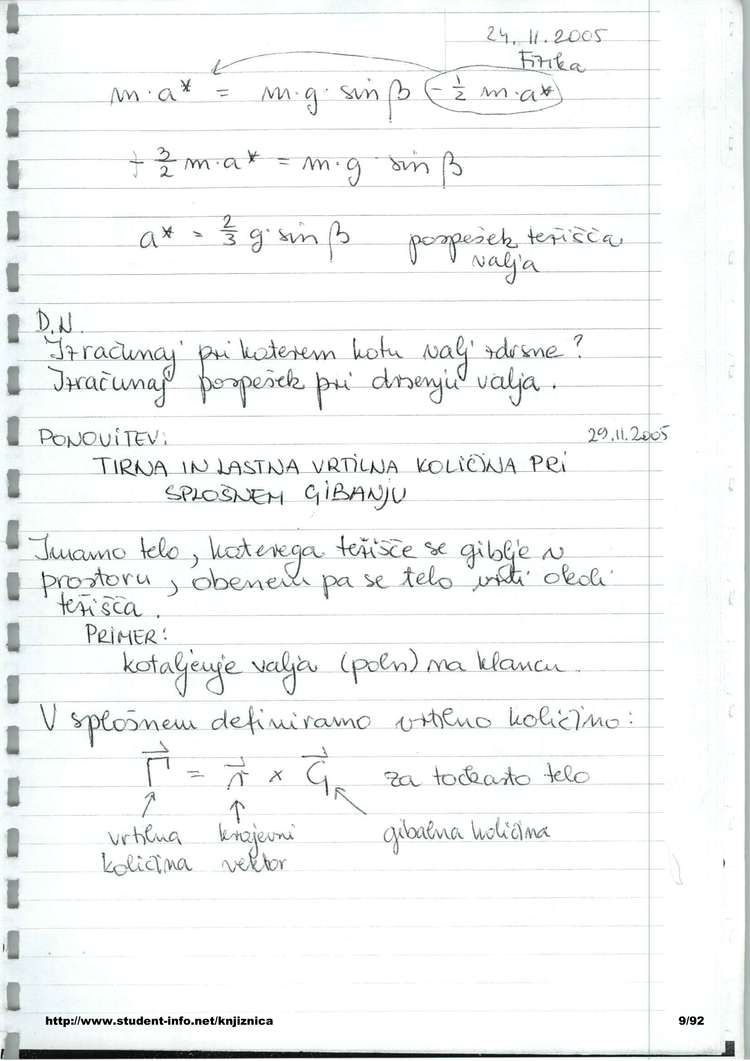 24. 11. 2005
Fizika
m·a* = m·g·sin β - 1/2 m·a*
+ 3/2 m·a* = m·g sin β
a* = 2/3 g·sin β pospešek težišča
valja
D.N.
Izračunaj pri katerem kotu valj zdrsne?
Izračunaj pospešek pri drsenju valja.
PONOVITEV: 29.11.2005
TIRNA IN LASTNA VRTILNA KOLIČINA PRI
SPLOŠNEM GIBANJU
Imamo telo, katerega težišče se giblje v
prostoru, obenem pa se telo vrti okoli
težišča.
PRIMER:
kotaljenje valja (poln) na klancu
V splošnem definiramo vrtilno količino:
Γ⃗ = r⃗ × G⃗ za točkasto telo
vrtilna krajevni gibalna količina
količina vektor
http://www.student-info.net/knjiznica 9/92